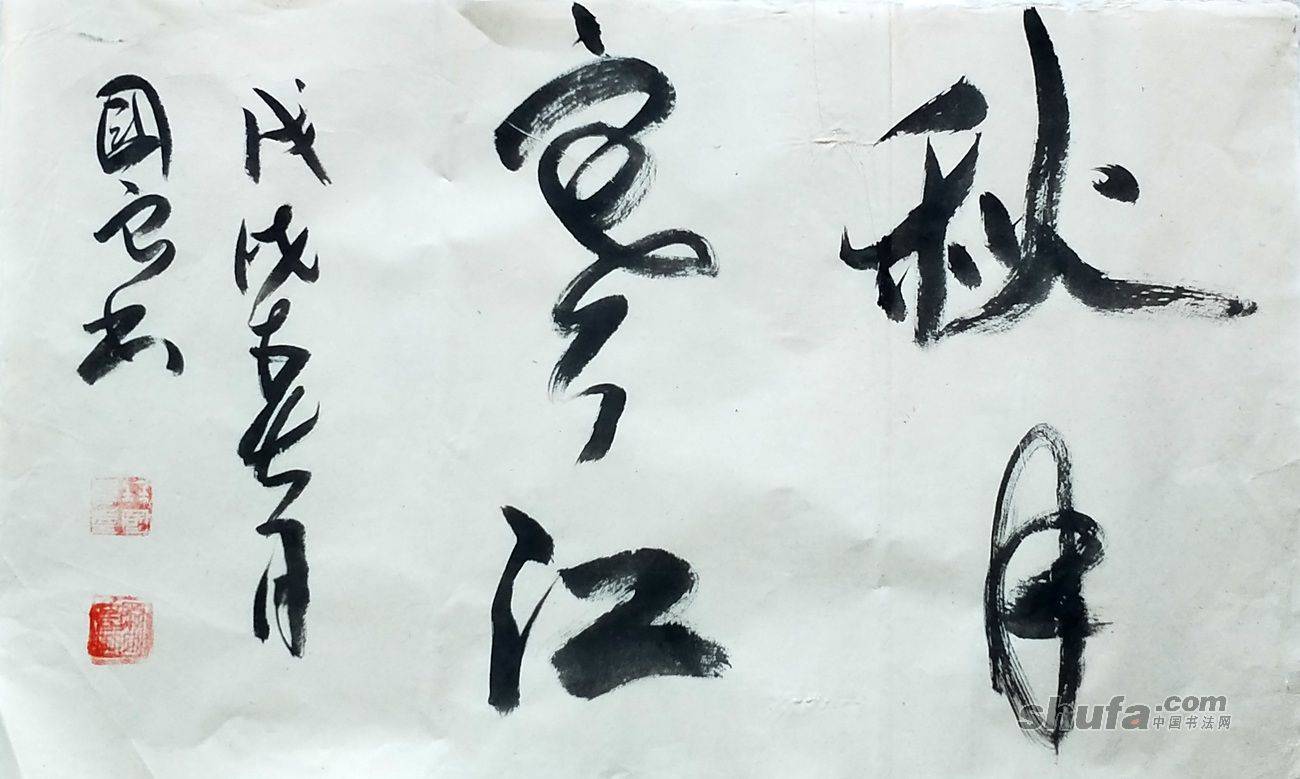 秋月
寒江
戊戌春七月
國安书
shufa.com
中国书法网